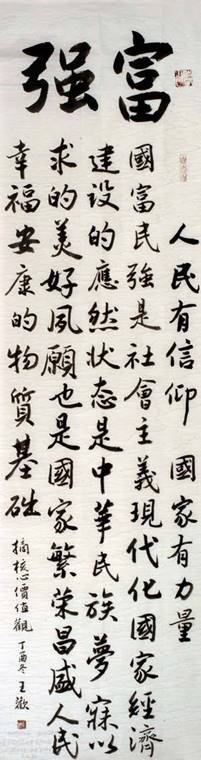 富强
人民有信仰 國家有力量
國富民強是社會主義現代化國家經濟
建设的應然状态是中華民族夢寐以
求的美好夙願也是國家繁荣昌盛人民
幸福安康的物質基础
摘核心價值觀 丁酉冬 王歡